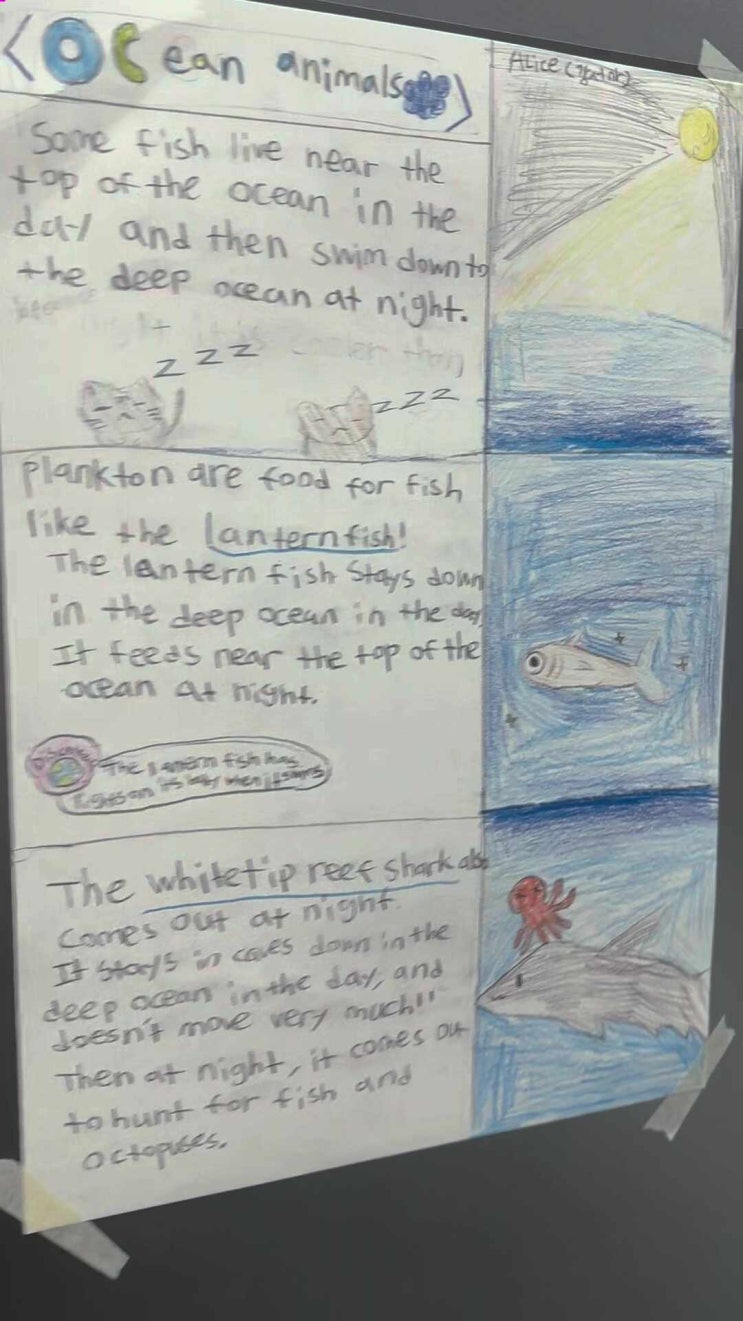 <Ocean animals>
Alice
Some fish live near the
top of the ocean in the
day and then swim down to
the deep ocean at night.
z z z
zzz
plankton are food for fish
like the lanternfish!
The lantern fish stays down
in the deep ocean in the day
It feeds near the top of the
ocean at night.
The lantern fish has
on its body when it
The whitetip reef shark also
comes out at night.
It stays in caves down in the
deep ocean in the day, and
doesn't move very much!!
Then at night, it comes out
to hunt for fish and
octopuses.